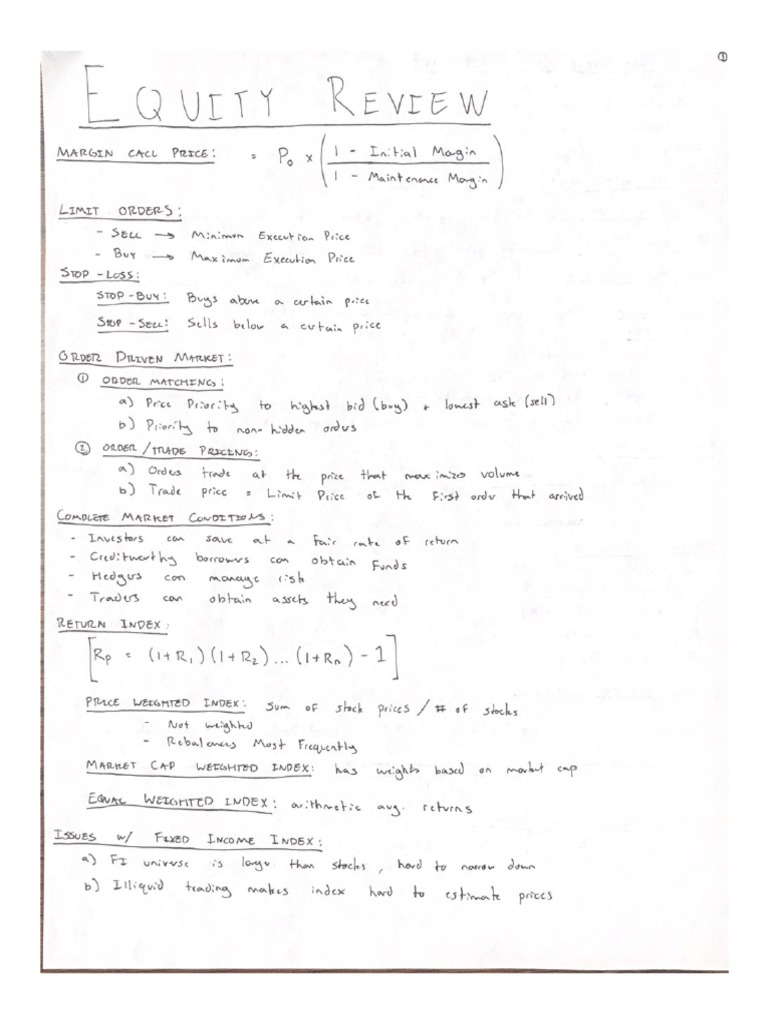 ①
EQUITY REVIEW
MARGIN CALL PRICE: = P₀ × ( 1 - Initial Margin / 1 - Maintenance Margin )
LIMIT ORDERS:
- SELL → Minimum Execution Price
- BUY → Maximum Execution Price
STOP-LOSS:
STOP-BUY: Buys above a certain price
STOP-SELL: Sells below a certain price
ORDER DRIVEN MARKET:
① ORDER MATCHING:
a) Price Priority to highest bid (buy) + lowest ask (sell)
b) Priority to non-hidden orders
② ORDER/TRADE PRICING:
a) Orders trade at the price that maximizes volume
b) Trade price = Limit Price of the First order that arrived
COMPLETE MARKET CONDITIONS:
- Investors can save at a fair rate of return
- Creditworthy borrowers can obtain funds
- Hedgers can manage risk
- Traders can obtain assets they need
RETURN INDEX:
[Rp = (1+R₁)(1+R₂)...(1+Rn) - 1]
PRICE WEIGHTED INDEX: Sum of stock prices / # of stocks
- Not weighted
- Rebalances Most Frequently
MARKET CAP WEIGHTED INDEX: has weights based on market cap
EQUAL WEIGHTED INDEX: arithmetic avg. returns
ISSUES w/ FIXED INCOME INDEX:
a) FI universe is larger than stocks, hard to narrow down
b) Illiquid trading makes index hard to estimate prices